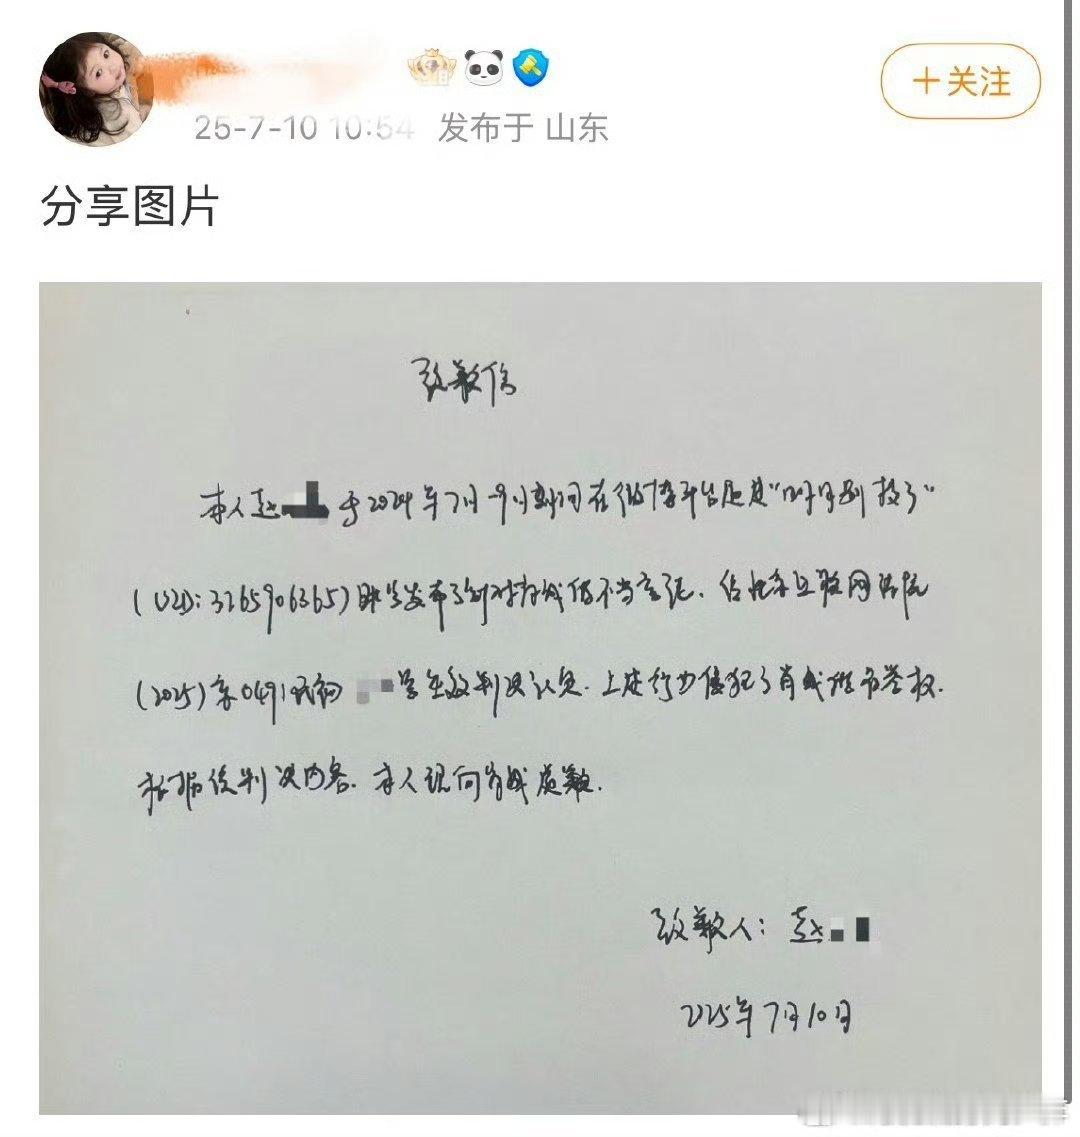 25-7-10 10:54 发布于 山东
+关注
分享图片
致歉信
本人赵 于2024年7月-9月期间在微博平台通过"
(UID:3265906365)账号发布了针对肖战的不当言论.经北京互联网法院
(2025)京0491民初 号生效判决认定.上述行为侵犯了肖战的名誉权.
根据该判决内容.本人现向肖战致歉.
致歉人:赵
2025年7月10日